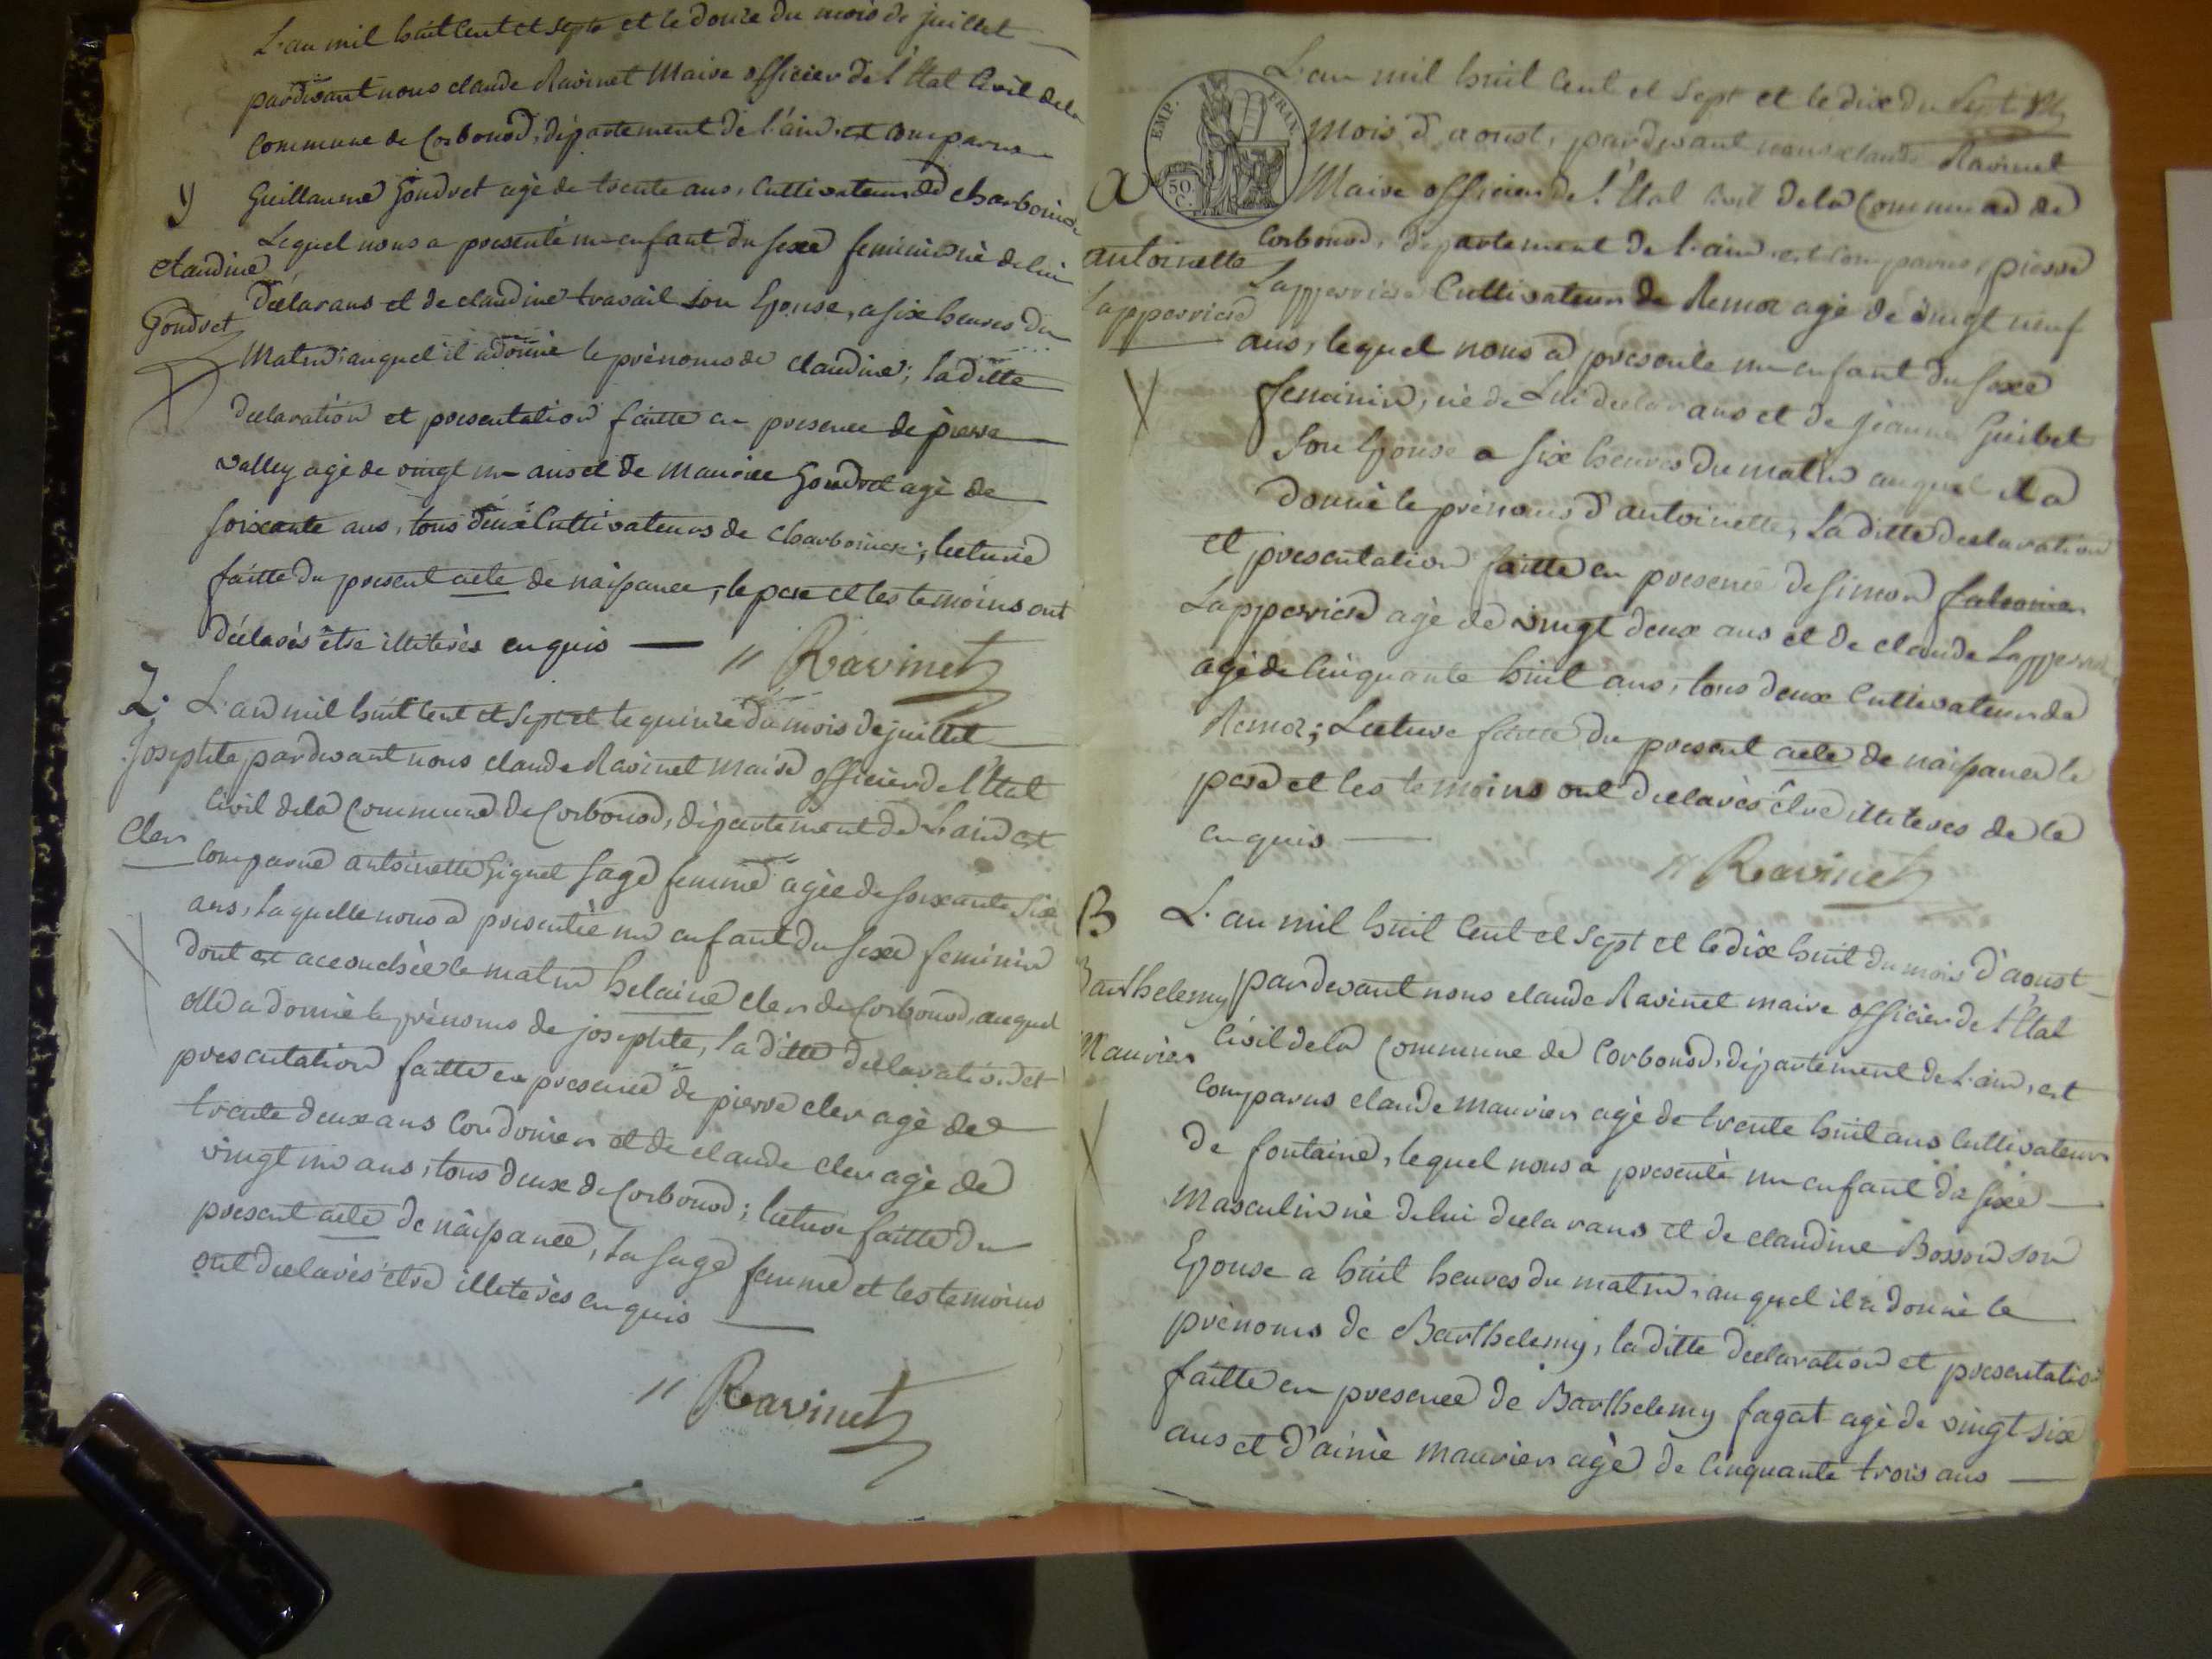 L'an mil huit cent et sept et le douze du mois de juillet
pardevant nous claude Ravinet Maire officier de l'Etat Civil dela
Commune de Corbonod, département de l'ain, est comparus
y
Guillaume Gondret agè de trente ans, Cultivateur de charbonod
Lequel nous a presenté un enfant du sexe feminin nè de lui
claudine
declarans et de claudine travail son Epouse, a six heures du
Gondret
Matin, auquel il a donnè le prènoms de claudine; la ditte
declaration et presentation faitte en presence de pierre
valley agè de vingt un ans et de maurice Gondret agè de
soixante ans, tous deux Cultivateurs de ; lecture
faitte du present acte de naissance, le pere et les temoins ont
déclarés être illiterès enquis
" Ravinet
Z.
L'an mil huit cent et sept et le quinze du mois de juillet
josephte
pardevant nous claude Ravinet Maire officier de l'Etat
Civil dela Commune de Corbonod, département de L'ain est
Cler
comparue antoinette Gignet sage femme agèe de soixante six
ans, laquelle nous a presentèe un enfant du sexe feminin
dont est accouchèe le matin helaine cler de Corbonod, auquel
elle a donnè le prènoms de josephte, la ditte declaration et
presentation faitte en presence de pierre cler agè de
trente deux ans Cordonier et de claude cler agè de
vingt un ans, tous deux de Corbonod; lecture faitte du
present acte de naissance, la sage femme et les temoins
ont declarès être illiterès enquis
" Ravinet
EMP. FRAN.
50. C.
L'an mil huit cent et sept et le dix du
mois d'aoust, pardevant nous claude Ravinet
a
Maire officier de l'Etat Civil dela Commune de
antoinette
Corbonod, département de l'ain, est comparus, pierre
Lapperriere
Lapperriere Cultivateur de Remoz agè de vingt neuf
ans, lequel nous a presentè un enfant du sexe
feminin, nè de Lui declarans et de jeanne Guibet
son Epouse a six heures du matin auquel il a
donnè le prènoms d'antoinette, la ditte declaration
et presentation faitte en presence de simon
Lapperriere agè de vingt deux ans et de claude Lapperriere
agè de cinquante huit ans, tous deux Cultivateurs de
Remoz; Lecture faitte du present acte de naissance le
pere et les temoins ont declarès être illiteres de le
enquis
" Ravinet
B
L'an mil huit cent et sept et le dix huit du mois d'aoust
Barthelemy
pardevant nous claude Ravinet maire officier de l'Etat
Maurier
Civil dela Commune de Corbonod, département de L'ain, est
comparus claude maurier agè de trente huit ans Cultivateur
de fontaine, lequel nous a presentè un enfant du sexe
masculin nè de lui declarans et de claudine Bosson son
Epouse a huit heures du matin, auquel il a donnè le
prènoms de Barthelemy, la ditte declaration et presentation
faitte en presence de Barthelemy fagat agè de vingt six
ans et d'aimè maurier agè de cinquante trois ans